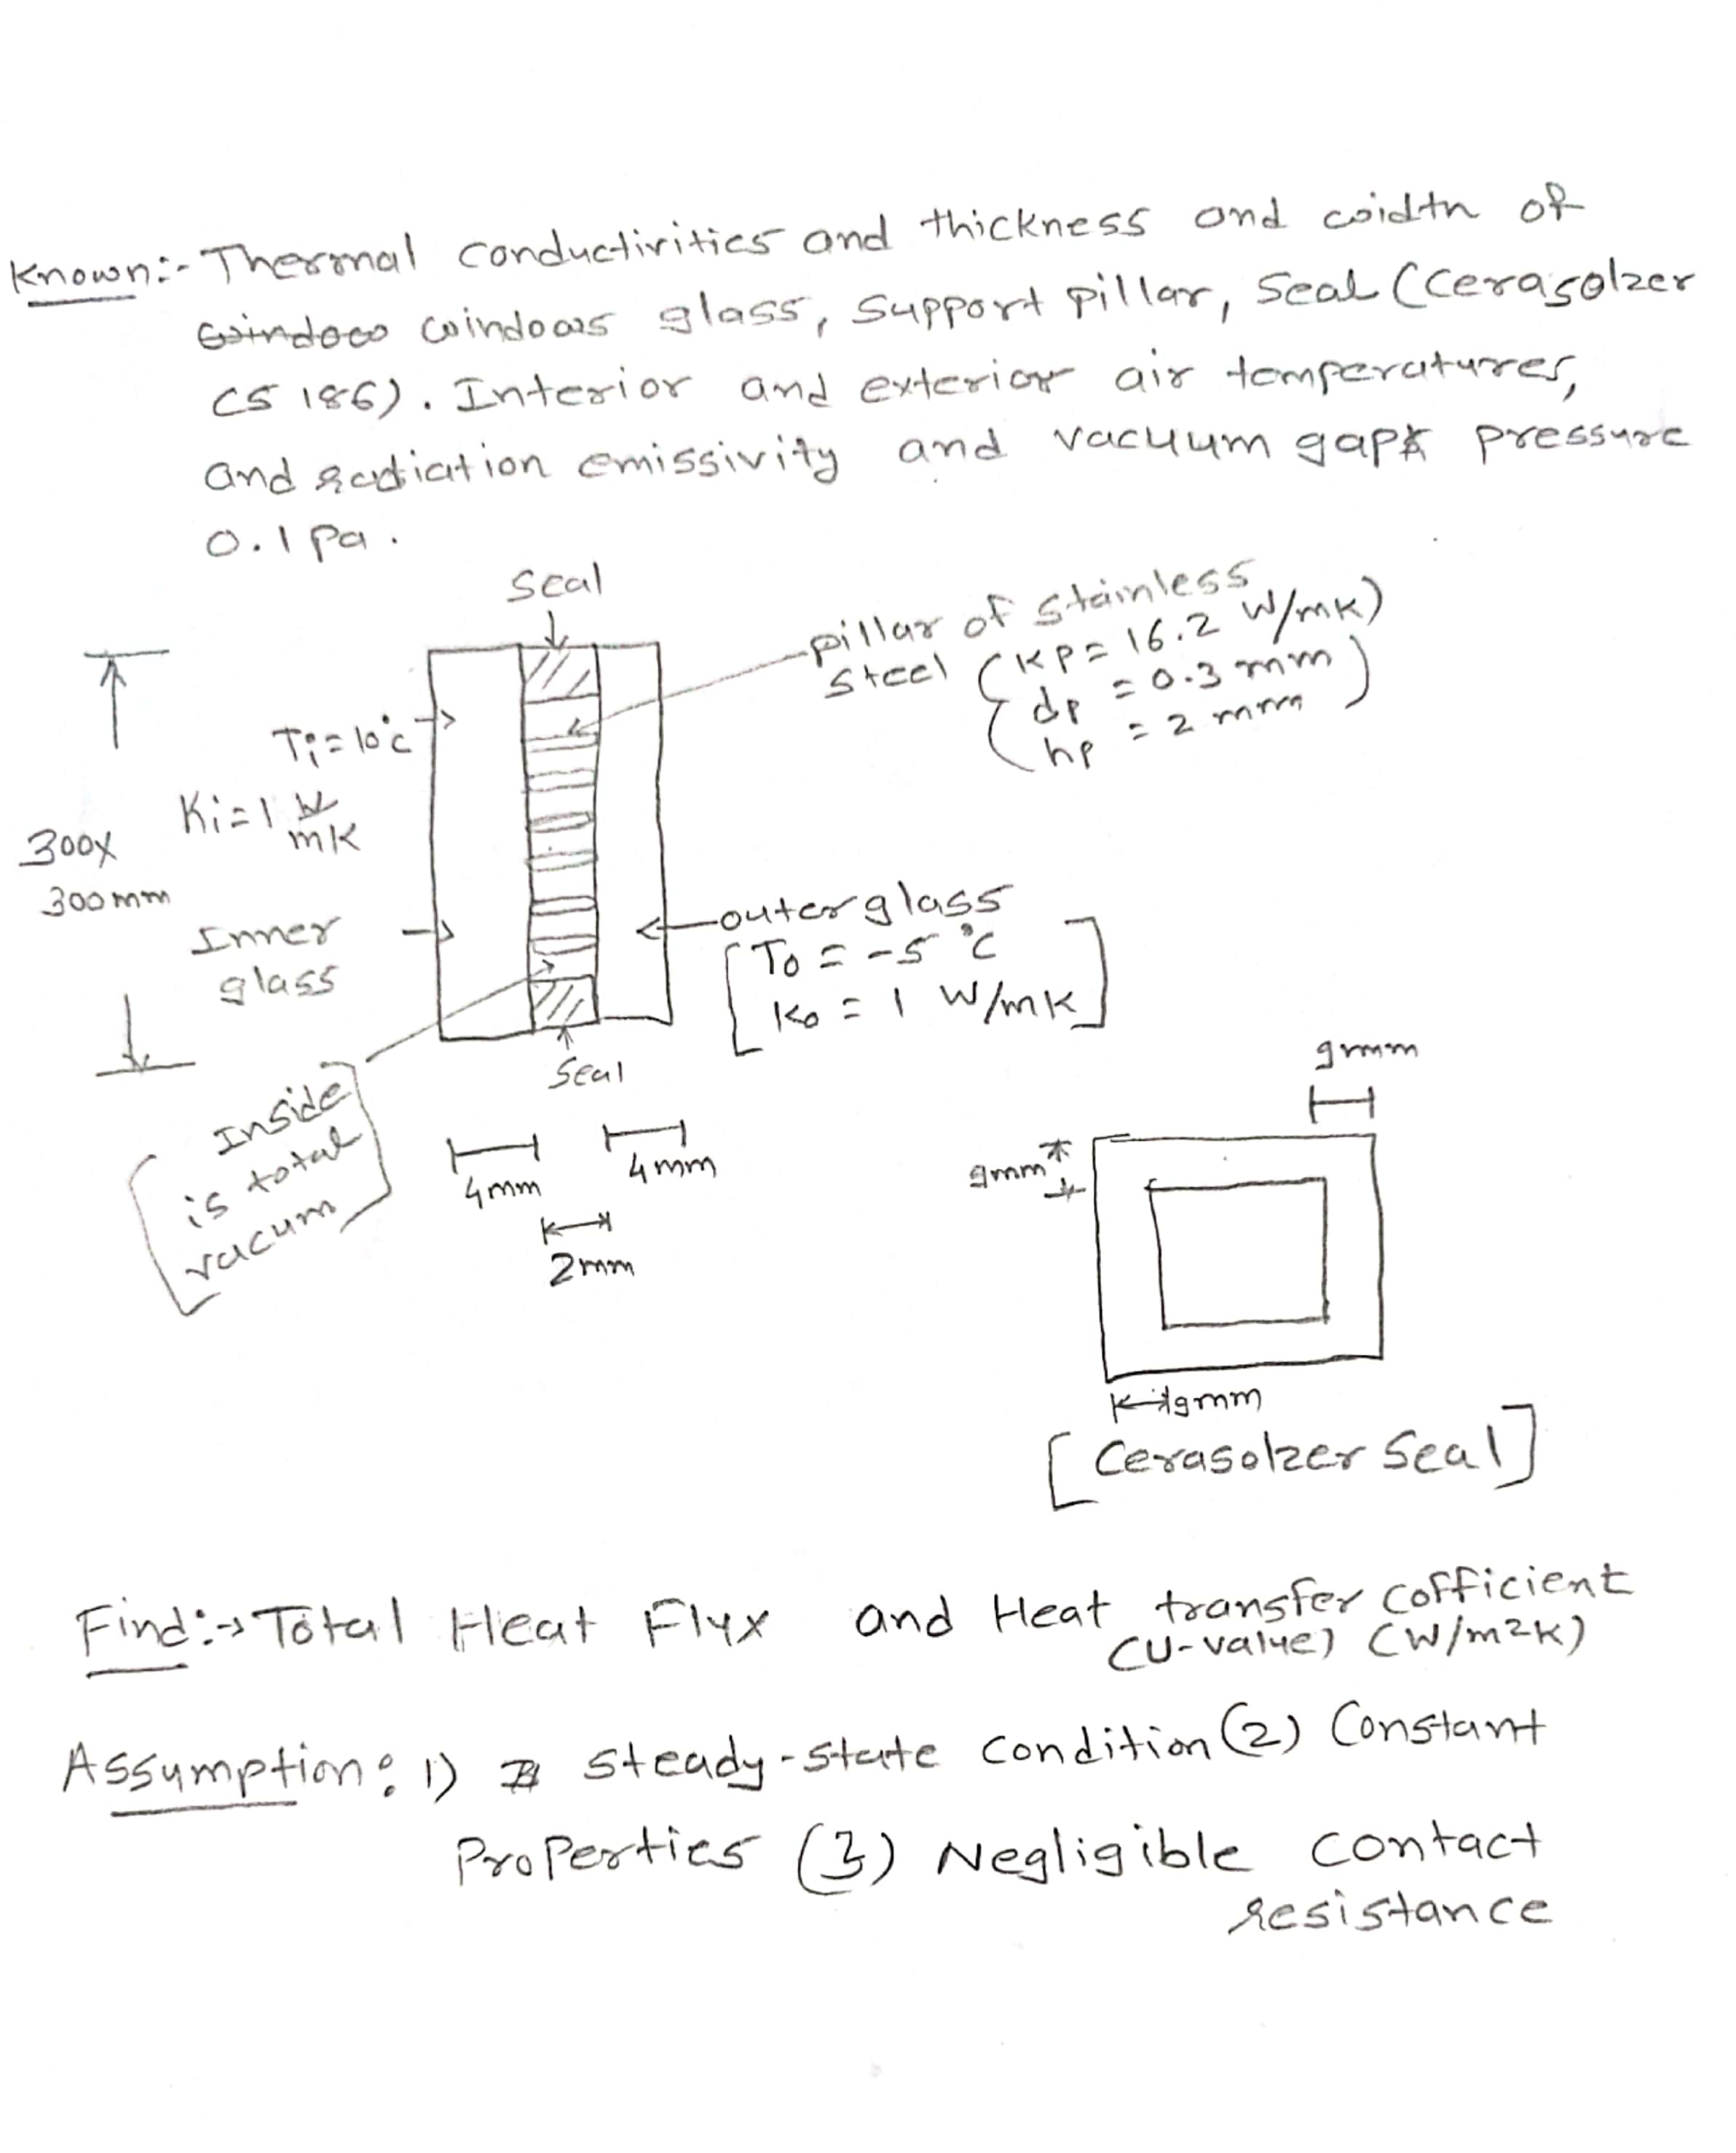 Known:- Thermal conductivities and thickness and width of
window windows glass, support pillar, seal (cerasolzer
CS 186). Interior and exterior air temperatures,
and radiation emissivity and vacuum gap pressure
0.1 pa.
Seal
pillar of stainless
steel (Kp = 16.2 W/mK)
dp = 0.3 mm
hp = 2 mm
Ti = 10°C
Ki = 1 W/mK
300x
300mm
Inner
glass
outer glass
To = -5 °C
Ko = 1 W/mK
Seal
Inside
is total
vacum
4mm
4mm
2mm
9mm
9mm
9mm
[Cerasolzer Seal]
Find:→ Total Heat Flux and Heat transfer cofficient
(U-value) (W/m2K)
Assumption: 1) steady-state condition (2) Constant
Properties (3) Negligible contact
resistance